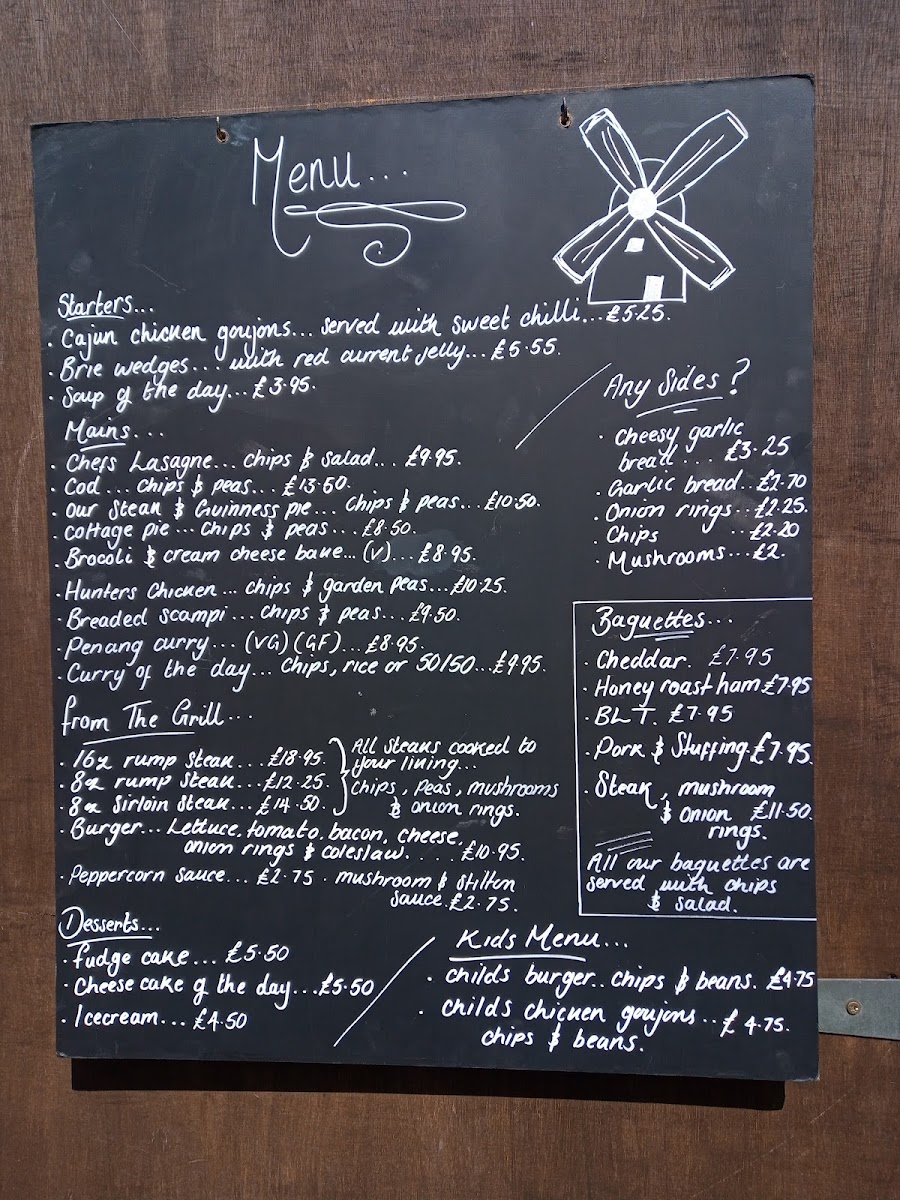 Menu...
Starters...
· Cajun chicken goujons... served with sweet chilli...£5.25.
· Brie wedges.... with red current jelly...£5.55.
· Soup of the day...£3.95.
Mains...
· Chefs Lasagne... chips & salad... £9.95.
· Cod ... chips & peas... £13.50.
· Our Steak & Guinness pie... chips & peas...£10.50.
· Cottage pie... chips & peas... £8.50.
· Brocoli & cream cheese bake... (V)... £8.95.
· Hunters Chicken... chips & garden peas...£10.25.
· Breaded scampi ... chips & peas...£9.50.
· Penang curry... (VG) (GF)... £8.95.
· Curry of the day... chips, rice or 50/50...£9.95.
from The Grill...
· 16oz rump steak... £18.95.
· 8oz rump steak... £12.25.
· 8oz Sirloin steak... £14.50.
All steaks cooked to
your lining...
chips, peas, mushrooms
& onion rings.
· Burger... Lettuce, tomato, bacon, cheese,
onion rings & coleslaw. . . . . £10.95.
· Peppercorn sauce... £2.75 · mushroom & Stilton
sauce. £2.75.
Desserts...
· fudge cake... £5.50
· Cheese cake of the day...£5.50
· Icecream... £4.50
Any Sides?
· Cheesy garlic
bread ... £3.25
· Garlic bread...£2.70
· Onion rings...£2.25.
· Chips ..£2.20
· Mushrooms...£2.
Baguettes...
· Cheddar. £7.95
· Honey roast ham £7.95
· BLT. £7.95
· Pork & Stuffing. £7.95.
· Steak, mushroom
& onion £11.50.
rings.
All our baguettes are
served with chips
& salad.
Kids Menu...
· childs burger.. chips & beans. £4.75
· childs chicken goujons... £4.75.
chips & beans.